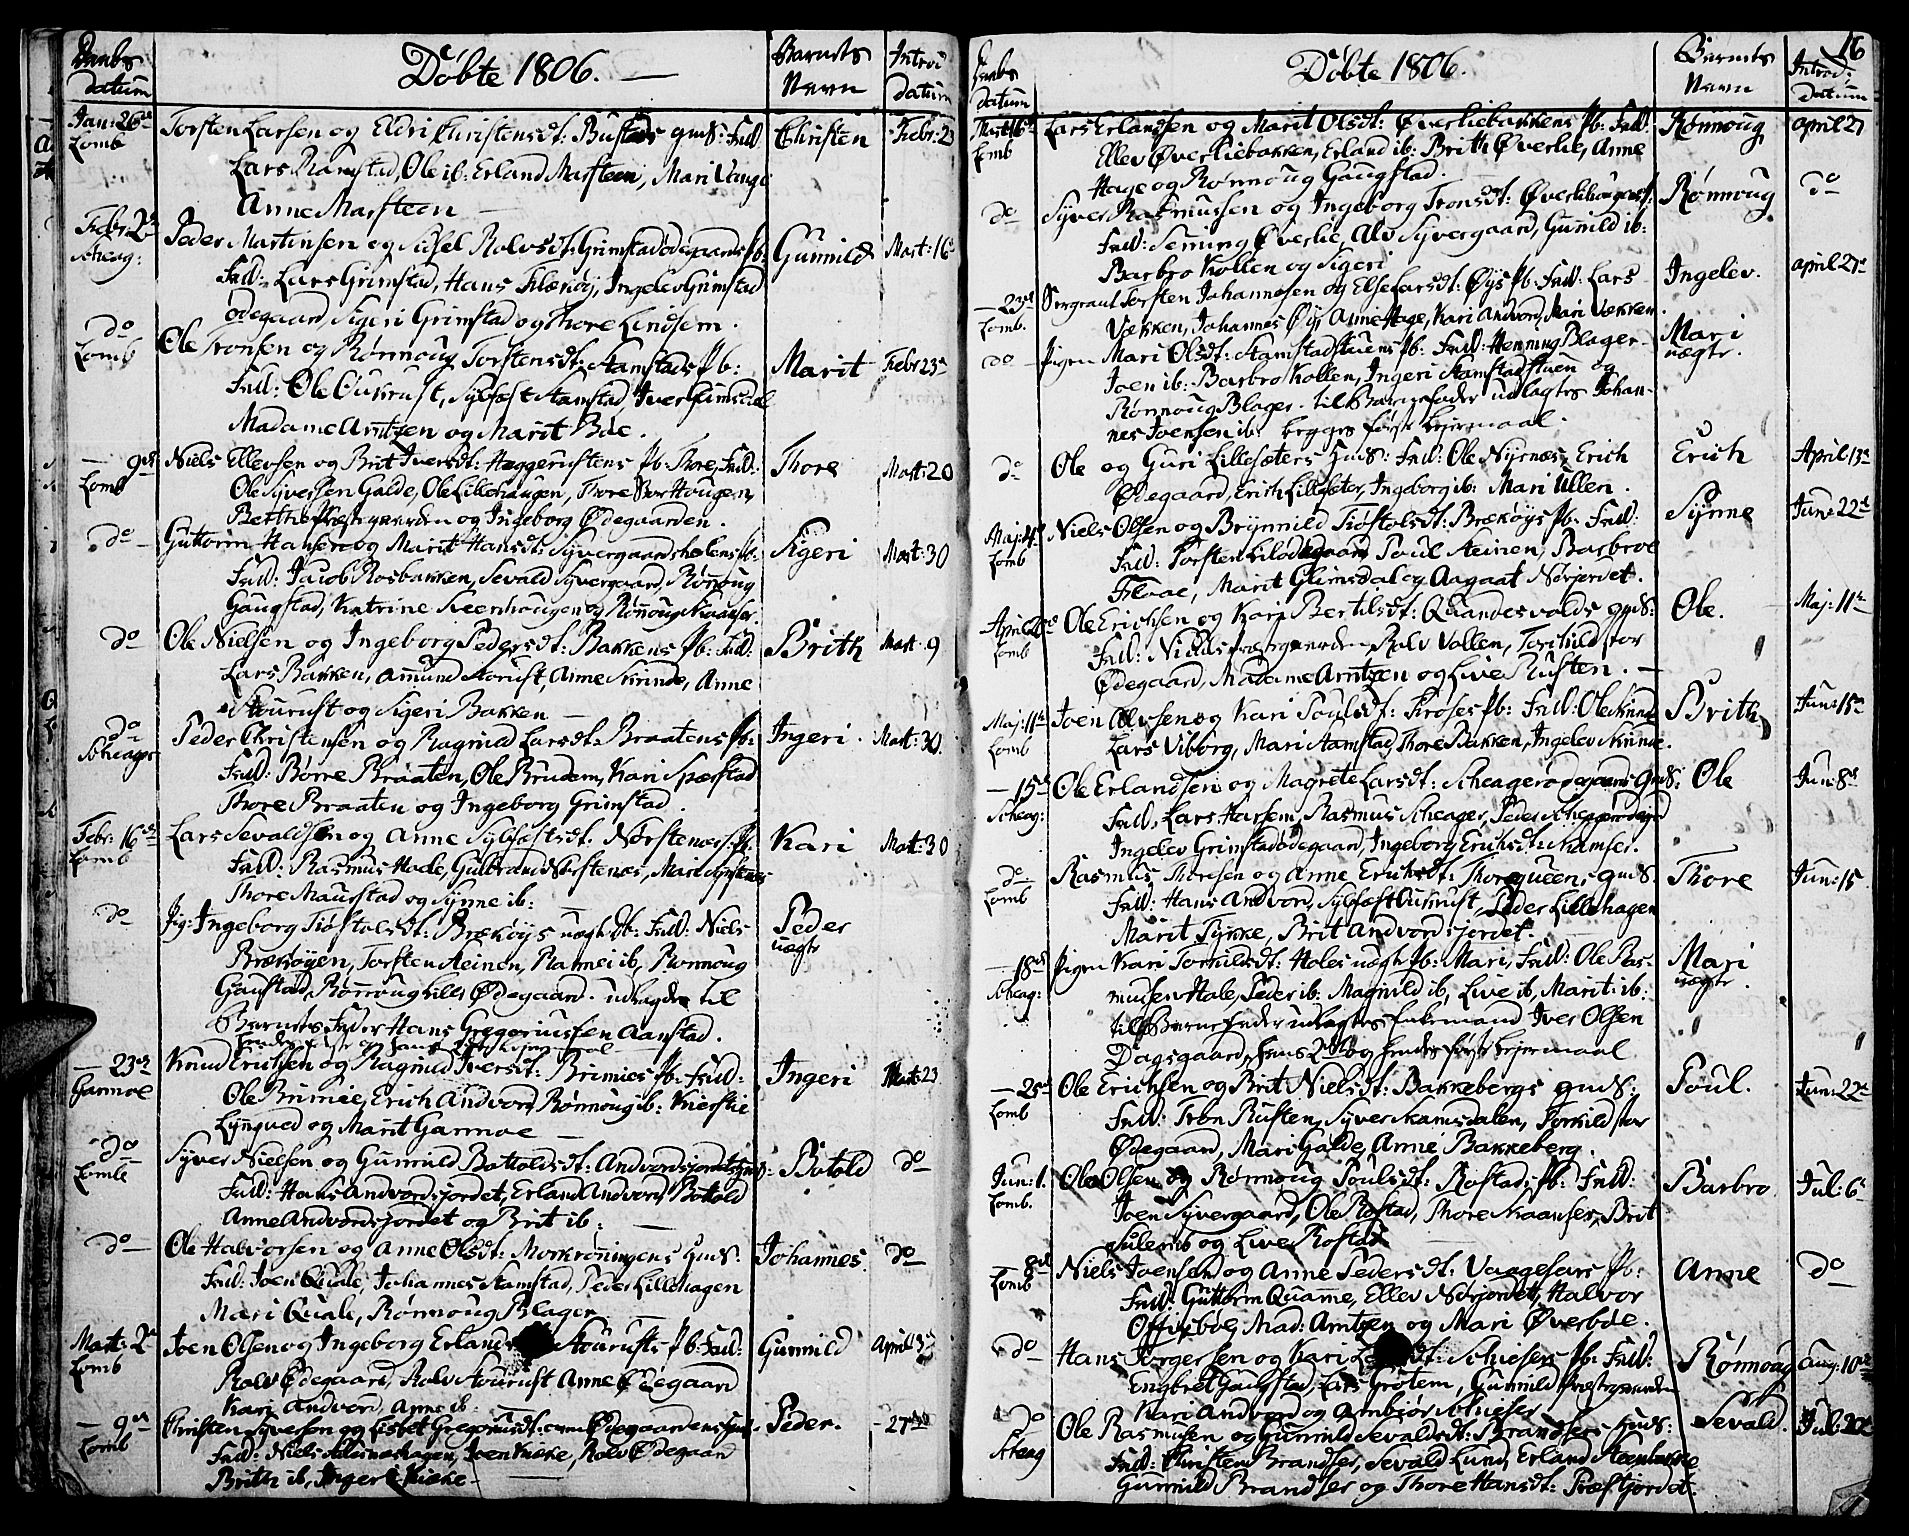 Daabs
datum
Döbte 1806.
Barnets
Navn
Introd
datum
Jan: 26de
Lomb
Torsten Larsen og Eldri Christensdt: gmd: Fad:
Lars Ramstad, Ole ib: Erland Marsteen, Mari Vange
Anne Marsteen
Christen
Febr: 23
Febr: 2de
Scheag:
Peder Martinsen og Sidsel Rolvsdt: Grimstadödegaards Pb:
Fad: Lars Grimstad, Hans Flækøy, Ingelev Grimstad
ödegaard, Sigeri Grimstad og Thore Lindsem.
Gunnild
Mart: 16
do
Lomb
Ole Tronsen og Rønnoug Torstensdt: Aamstads Pb:
Fad: Ole Oukrust, Sylfæst Aamstad, Iver Glimsdal
Madame Arntzen og Marit Böe.
Marit
Febr 23
9de
Lomb
Niels Ellevsen og Brit Iversdt: Heggerustens Pb: Thore, Fad:
Ole Syversen Galde, Ole Lillehaugen, Thore Hougen,
Berthe Præstgaarden og Ingeborg Ødegaarden.
Thore
Mart: 20
do
Guttorm Hansen og Marit Hansdt: Syvergaardsholens Pb:
Fad: Jacob Rosbakken, Sevald Syvergaard, Rønnoug
Gaugstad, Katrine Steenhougen og Rønnoug Skaanser.
Sigeri
Mart: 30
do
Ole Nielsen og Ingeborg Pedersdt: Bakkens Pb: Fad:
Lars Bakken, Amund Stourust, Anne Skrinde, Anne
Stourust og Sigeri Bakken
Brith
Mart: 9
do
Scheager
Peder Christensen og Ragnild Larsdt: Braatens Pb:
Fad: Börre Braaten, Ole Brudem, Kari
Thore Braaten og Ingeborg Grimstad.
Ingeri
Mart: 30
Febr: 16de
Lomb
Lars Sevaldsen og Anne Sylfæstsdt: Norstenæs Pb:
Fad: Rasmus Hole, Gulbrand Norstenæs, Mari
Thore Maurstad og Synne ib:
Kari
Mart: 30
do
Pig: Ingeborg Tiøstolsdt: Brækøys uægte Pb: Fad: Niels
Brækøyen, Torsten Steinen, Rannei ib, Rønnoug
Gaustad, Rønnoug Ødegaard. udlagde til
Barnets Fader Hans Gregoriussen Aanstad.
Peder
uægte
23de
Garmoe
Knud Erichsen og Ragnild Iversdt: Brimies Pb: Fad:
Ole Brimie, Erich Andvord, Rønnoug ib: Kierstie
Lyngved og Marit Garmoe
Ingeri
Mart: 23
do
Lomb
Syver Nielsen og Gunnild Bottolsdt: Andvordsjordets gmd:
Fad: Hans Andvordsjordet, Erland Andvord, Botold
Anne Andvordsjordet og Brit ib:
Botold
do
do
Ole Halvorsen og Anne Olsdt: Morkrøningens gmd:
Fad: Joen Quale, Johannes Aamstad, Peder Lillehagen
Mari Quale, Rønnoug Blager
Johannes.
do
Mart: 2de
Lomb
Joen Olsen og Ingeborg Erlands Stourusts Pb: Fad:
Rolv Ødegaard, Rolv Stourust, Anne Ødegaard
Kari Andvord, Anne ib:
Gunnild
April
9de
Lomb
Christen Syversen og Lisbet Gregoriusdt: Ødegaardens
Fad: Niels, Joen Kieke, Rolv Ødegaard
Brith ib, Inger Kieke
Peder.
27de
16
Daabs
datum
Döbte 1806.
Barnets
Navn
Introd:
Datum
Mart 16de
Lomb
Lars Erlandsen og Marit Olsdt: Øverliebakkens Pb: Fad:
Ellev Øverliebakken, Erland ib: Brith Øverlie, Anne
Hage og Rønnoug Gaugstad.
Rønnoug
april 27
do
Syver Rasmussen og Ingeborg Tronsdt: Øverliehaugens
Fad: Seming Øverlie, Alv Syvergaard, Gunild ib:
Barbro Kollen og Sigeri
Rønnoug
do
23de
Lomb.
Sergeant Torsten Johannesen og Else Larsdt: Øys Pb: Fad: Lars
Vækken, Johannes Øy, Anne Hage, Kari Andvord, Mari Vækken
Ingelev.
april 27de
do
Pigen Mari Olsdt: Aamstadstuens Pb: Fad: Henning Blager
Joen ib: Barbro Kollen, Ingeri Aamstadstuen og
Rønnoug Blager. til Barnefader udlagtes Johan-
nes Joensen ib: begges første Leiermaal.
Mari
uægte.
do
Ole og Guri Lillesæters gmd: Fad: Ole Nyrnæs, Erich
Ødegaard, Erich Lillesæter, Ingeborg ib: Mari Ullen.
Erich
April 13de
Maj: 4de
Lomb
Niels Olsen og Brynnild Tiøstolsdt: Brækøys Pb: Fad:
Fad: Torsten Poul Steinen, Barbroe
Floae, Marit Glimsdal og Aagaat Norjordet.
Synne
Jun: 22de
April
Lomb
Ole Erichsen og Kari Bertilsdt: Quandesvolds gmd:
Fad: Niels Præstgaarden, Rolv Vollen, Torchild stor
Ødegaard, Madame Arntzen og Live Rusten.
Ole.
Maj: 11te
Maj: 11te
Lomb
Joen Alvsen og Kari Poulsdt: Pb: Fad: Ole
Lars Viborg, Mari Aamstad, Thore Bakken, Ingelev Skrinde.
Brith
Jun: 15de
15de
Scheag:
Ole Erlandsen og Magrete Larsdt: Scheagerødegaards gmd:
Fad: Lars Harsem, Rasmus Scheager, Peder
Ingelev Grimstadödegaard, Ingeborg Erichsdt:
Ole
Jun: 8de
do
Lomb
Rasmus Thoresen og Anne Erichsdt: Thorsqueens gmd:
Fad: Hans Andvord, Sylfæst Oukrust, Peder Lillehagen
Marit Tykke, Brit Andvordsjordet.
Thore
Jun: 15
18de
Scheag:
Pigen Kari Torkildsdt: Holes uægte Pb: Mari, Fad: Ole Ras-
musen Hole, Peder ib: Magnild ib, Live ib, Marit: ib:
til Barnefader udlagtes Enkemand Iver Olsen
Dagsgaard, hans 2det og hendes første Leiermaal
Mari
uægte.
25de
Lomb
Ole Erichsen og Brit Nielsdt: Bakkebergs gmd:
Fad: Tron Rusten, Syver Kamsdalen, Torkild stor
Ødegaard, Mari Galde, Anne Bakkeberg.
Poul.
Jun: 22de
Jun: 1.
Lomb.
Ole Olsen og Rønnoug Poulsdt: Rostads Pb: Fad:
Joen Syvergaard, Ole Rostad, Thore Skaanser, Brit
Sulem og Live Rostad
Barbro
Jul: 6te
8de
Lomb
Niels Joensen og Anne Pedersdt: Vaagesars Pb:
Fad: Guttorm Quamme, Ellev Norjordet, Halvor
Offigsboe, Mad: Arntzen og Mari Øverböe.
Anne
do
do
Hans Torgersen og Kari Schiesers Pb: Fad:
Engbret Gaugstad, Lars Grötem, Gunnild Præstgaarden
Kari Andvord og Arnbiør
Rønnoug
Aug: 10de
do
Skeag
Ole Rasmusen og Gunnild Sevaldsdt: Brandsers gmd:
Fad: Christen Brandser, Sevald Lund, Erland Steenbække
Gunnild Brandser og Thore Hansdt: Præstjordet.
Sevald.
Jul: 20de